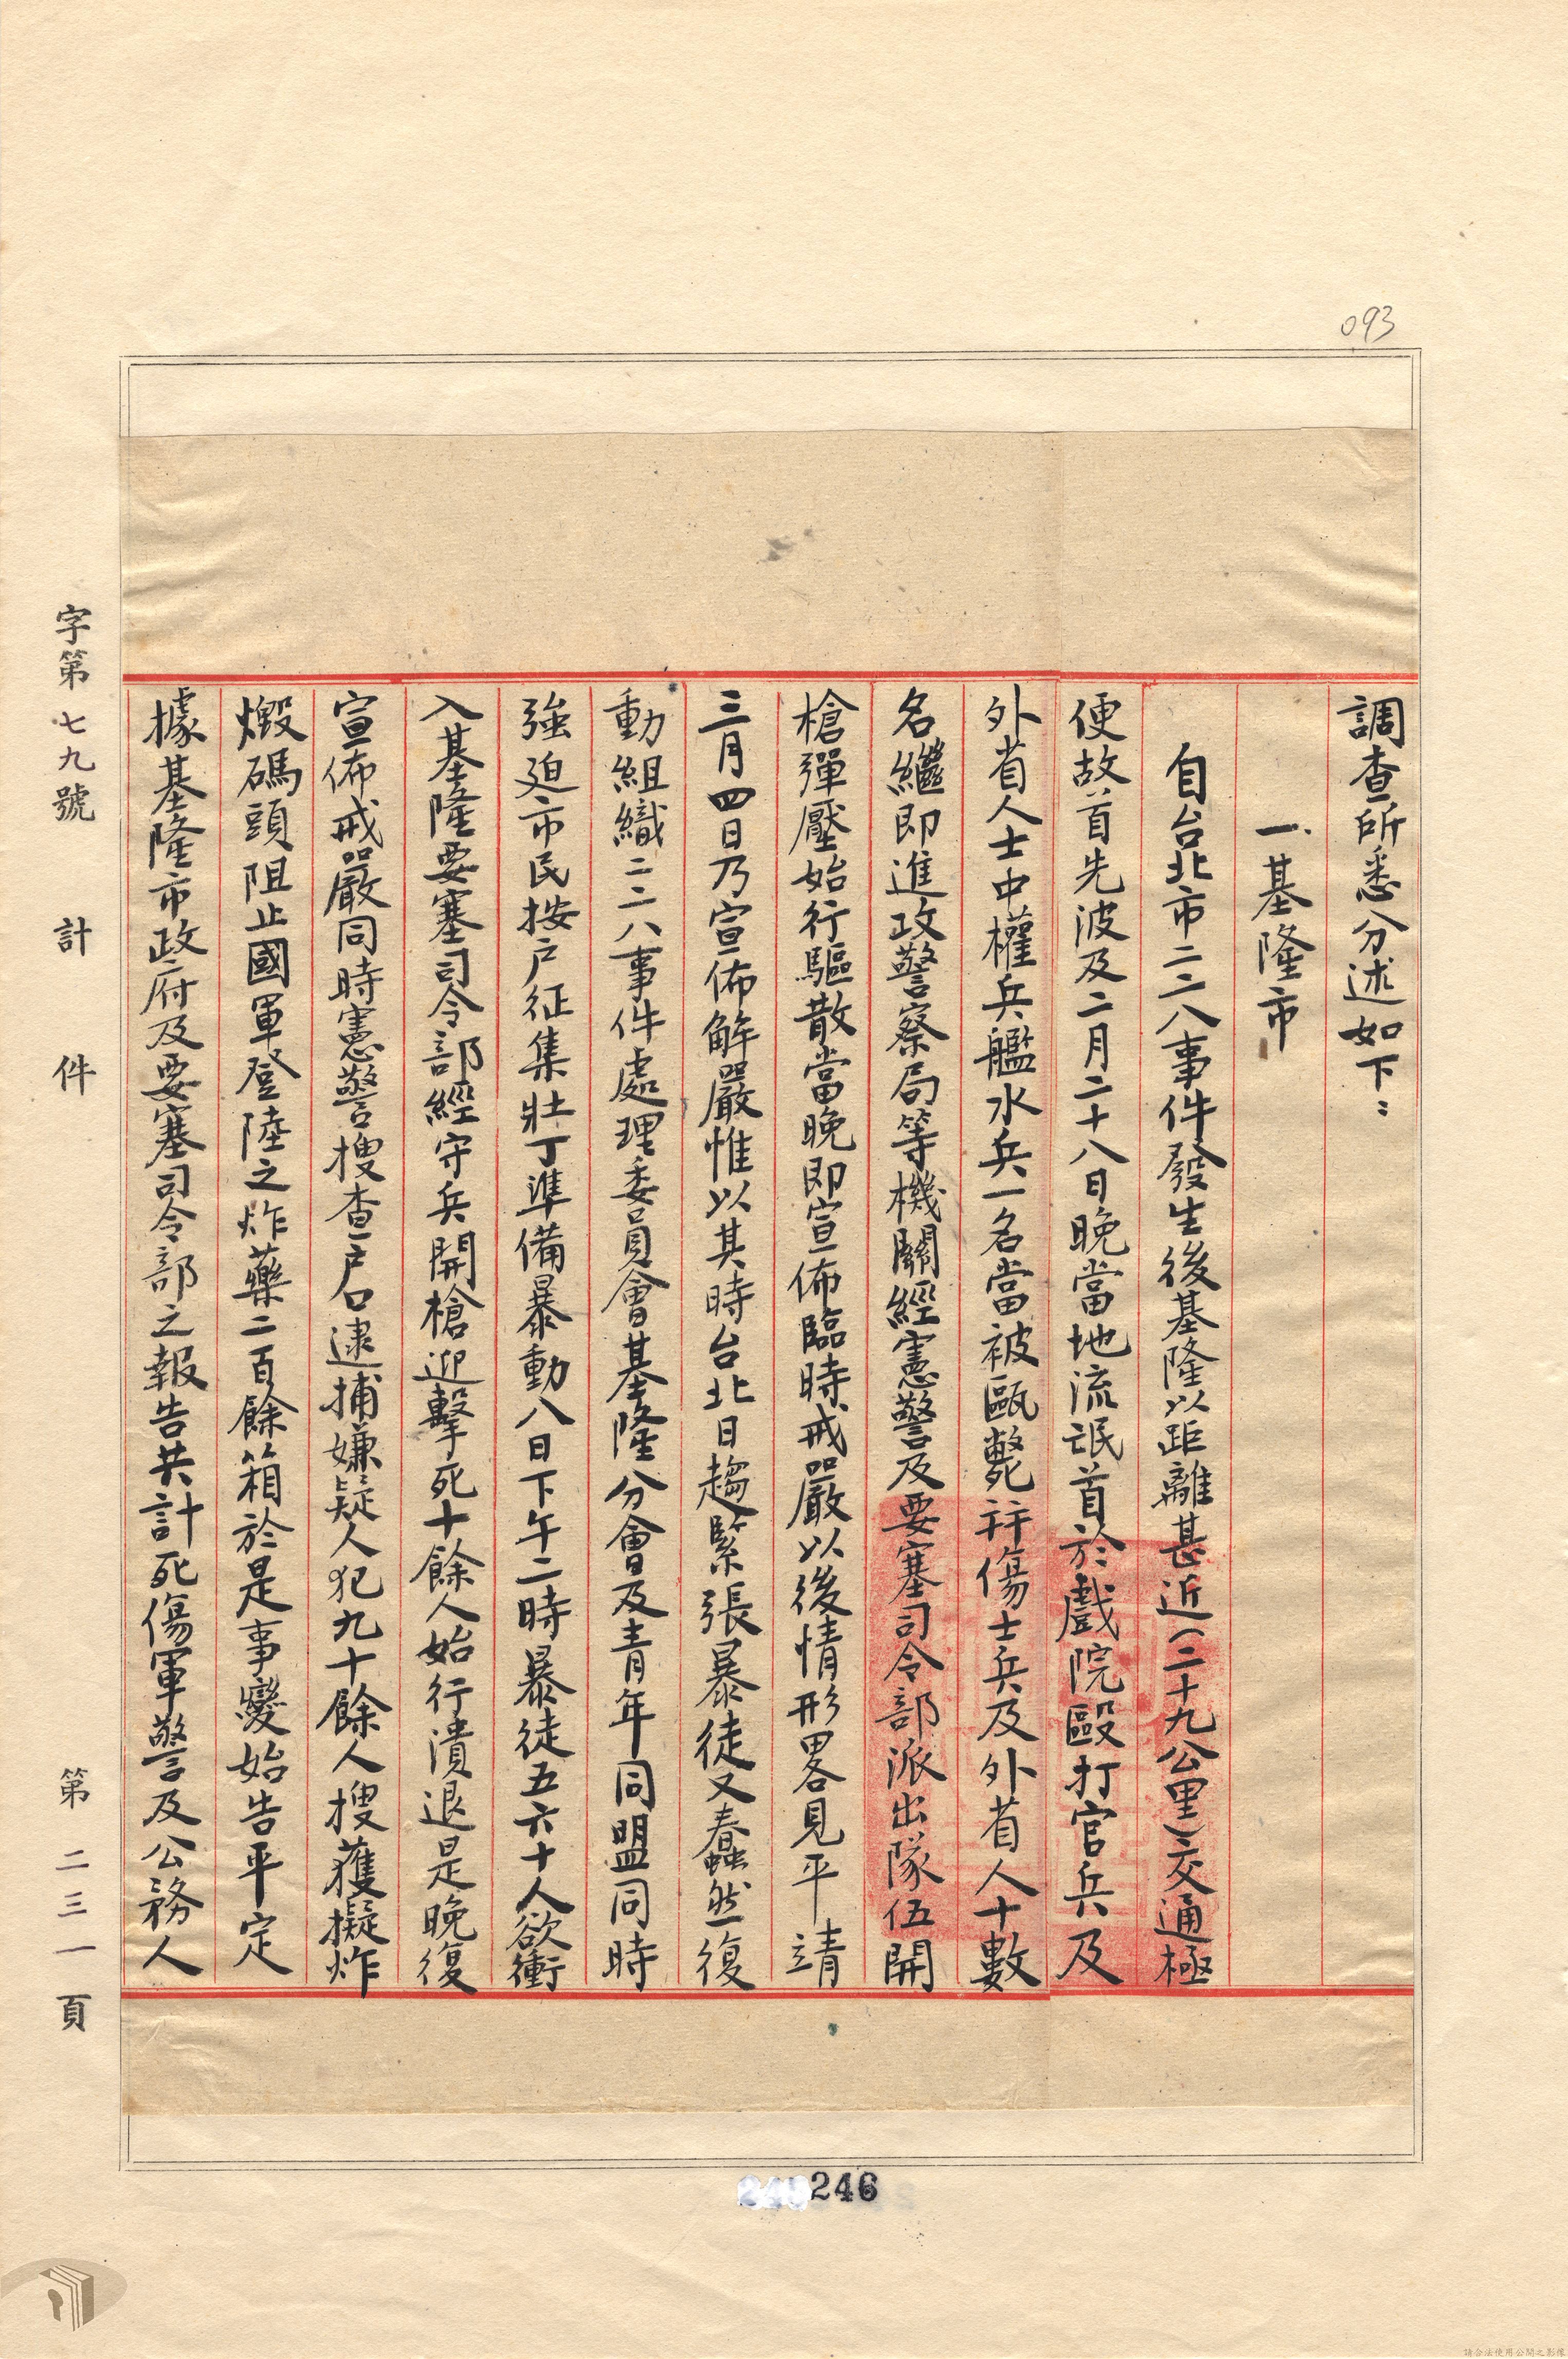 093
調查所悉分述如下：
一、基隆市
自台北市二二八事件發生後基隆以距離甚近（二十九公里）交通極
便故首先波及二月二十八日晚當地流氓首於戲院毆打官兵及
外省人士中權兵艦水兵一名當被毆斃并傷士兵及外省人十數
名繼即進攻警察局等機關經憲警及要塞司令部派出隊伍開
槍彈壓始行驅散當晚即宣佈臨時戒嚴以後情形畧見平靖
三月四日乃宣佈解嚴惟以其時台北日趨緊張暴徒又蠢然復
動組織二二八事件處理委員會基隆分會及青年同盟同時
強迫市民按户征集壯丁準備暴動八日下午二時暴徒五六十人欲衝
入基隆要塞司令部經守兵開槍迎擊死十餘人始行潰退是晚復
宣佈戒嚴同時憲警搜查户口逮捕嫌疑人犯九十餘人搜獲擬炸
燬碼頭阻止國軍登陸之炸藥二百餘箱於是事變始告平定
據基隆市政府及要塞司令部之報告共計死傷軍警及公務人
字第七九號 計 件 第二三一頁
246
請合法使用公開之影像